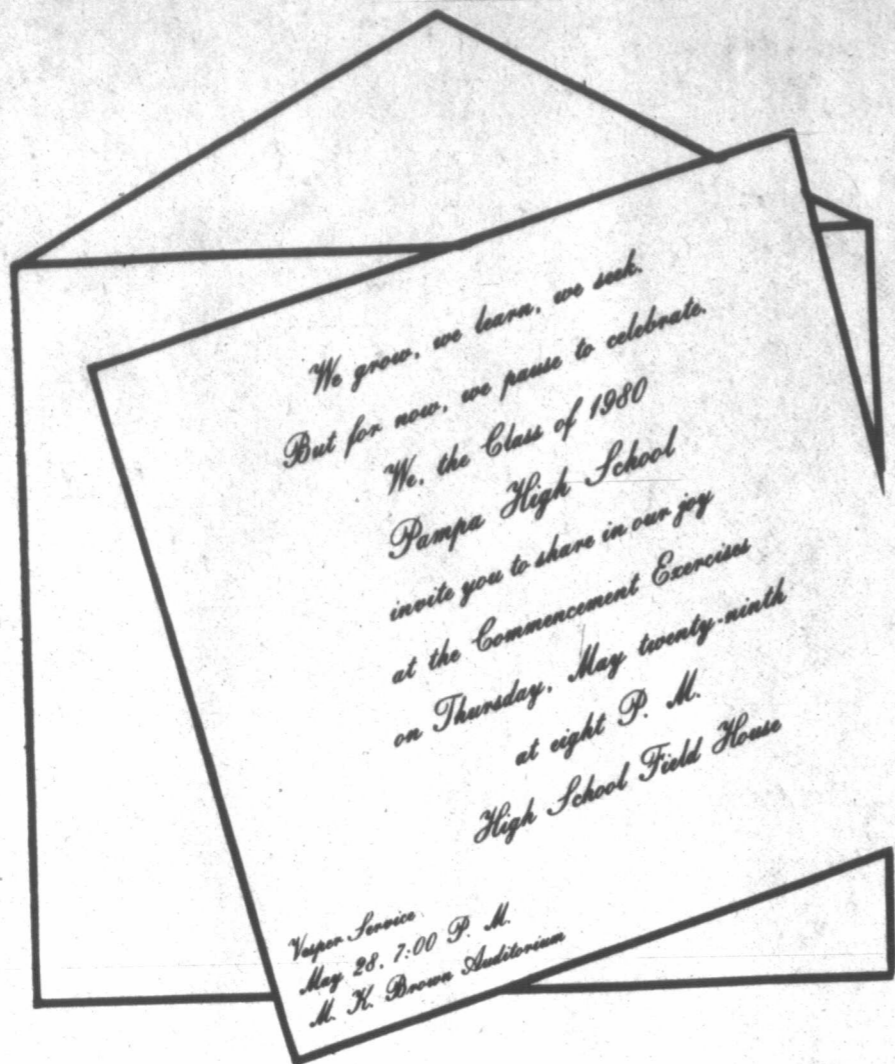 We grow, we learn, we seek.
But for now, we pause to celebrate.
We, the Class of 1980
Pampa High School
invite you to share in our joy
at the Commencement Exercises
on Thursday, May twenty-ninth
at eight P. M.
High School Field House
Vesper Service
May 28, 7:00 P. M.
M. K. Brown Auditorium